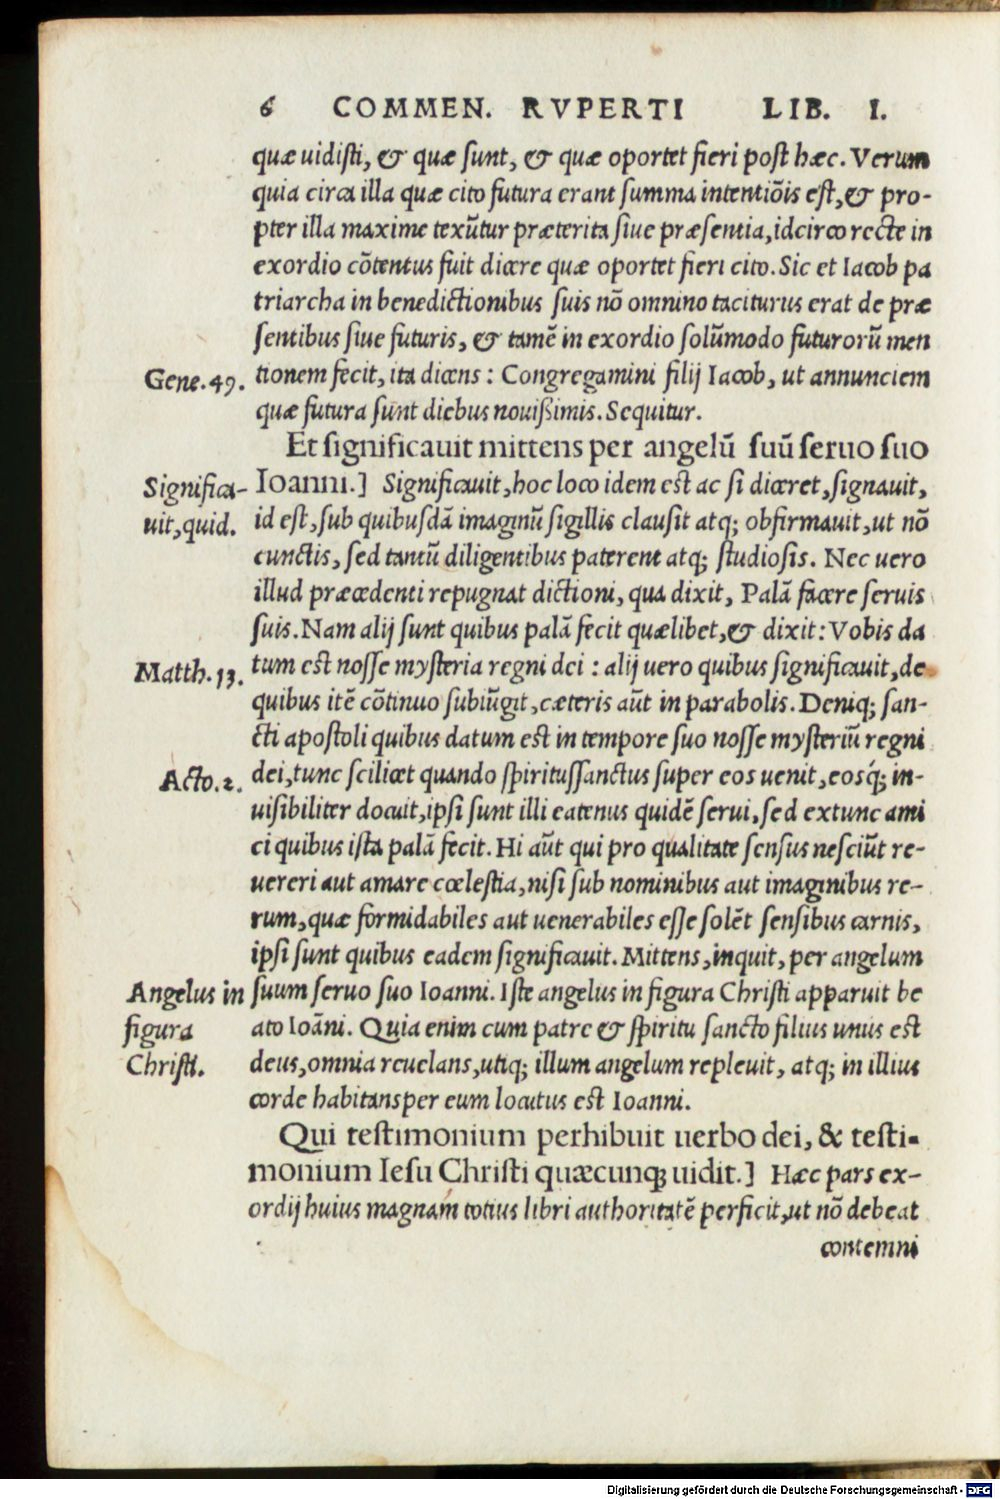 6 COMMEN. RVPERTI LIB. I.
quæ uidisti, & quæ sunt, & quæ oportet fieri post hæc. Verum
quia circa illa quæ cito futura erant summa intentiõis est, & pro-
pter illa maxime texũtur præterita siue præsentia, idcirco recte in
exordio cõtentus fuit dicere quæ oportet fieri cito. Sic et Iacob pa
triarcha in benedictionibus suis nõ omnino taciturus erat de præ
sentibus siue futuris, & tamẽ in exordio solũmodo futurorũ men
Gene. 49. tionem fecit, ita dicens: Congregamini filij Iacob, ut annunciem
quæ futura sunt diebus nouißimis. Sequitur.
Et significauit mittens per angelũ suũ seruo suo
Significa- Ioanni.] Significauit, hoc loco idem est ac si diceret, signauit,
uit, quid. id est, sub quibusdã imaginũ sigillis clausit atq; obfirmauit, ut nõ
cunctis, sed tantũ diligentibus paterent atq; studiosis. Nec uero
illud præcedenti repugnat dictioni, qua dixit, Palã facere seruis
suis. Nam alij sunt quibus palã fecit quælibet, & dixit: Vobis da
Matth. 13. tum est nosse mysteria regni dei: alij uero quibus significauit, de
quibus itẽ cõtinuo subiũgit, cæteris aũt in parabolis. Deniq; san-
cti apostoli quibus datum est in tempore suo nosse mysteriũ regni
Acto. 2. dei, tunc scilicet quando spiritussanctus super eos uenit, eosq́; in-
uisibiliter docuit, ipsi sunt illi eatenus quidẽ serui, sed extunc ami
ci quibus ista palã fecit. Hi aũt qui pro qualitate sensus nesciũt re-
uereri aut amare cœlestia, nisi sub nominibus aut imaginibus re-
rum, quæ formidabiles aut uenerabiles esse solẽt sensibus carnis,
ipsi sunt quibus eadem significauit. Mittens, inquit, per angelum
Angelus in suum seruo suo Ioanni. Iste angelus in figura Christi apparuit be
figura ato Ioãni. Quia enim cum patre & spiritu sancto filius unus est
Christi. deus, omnia reuelans, utiq; illum angelum repleuit, atq; in illius
corde habitans per eum locutus est Ioanni.
Qui testimonium perhibuit uerbo dei, & testi-
monium Iesu Christi quæcunq; uidit.] Hæc pars ex-
ordij huius magnam totius libri authoritatẽ perficit, ut nõ debeat
contemni
Digitalisierung gefördert durch die Deutsche Forschungsgemeinschaft - DFG